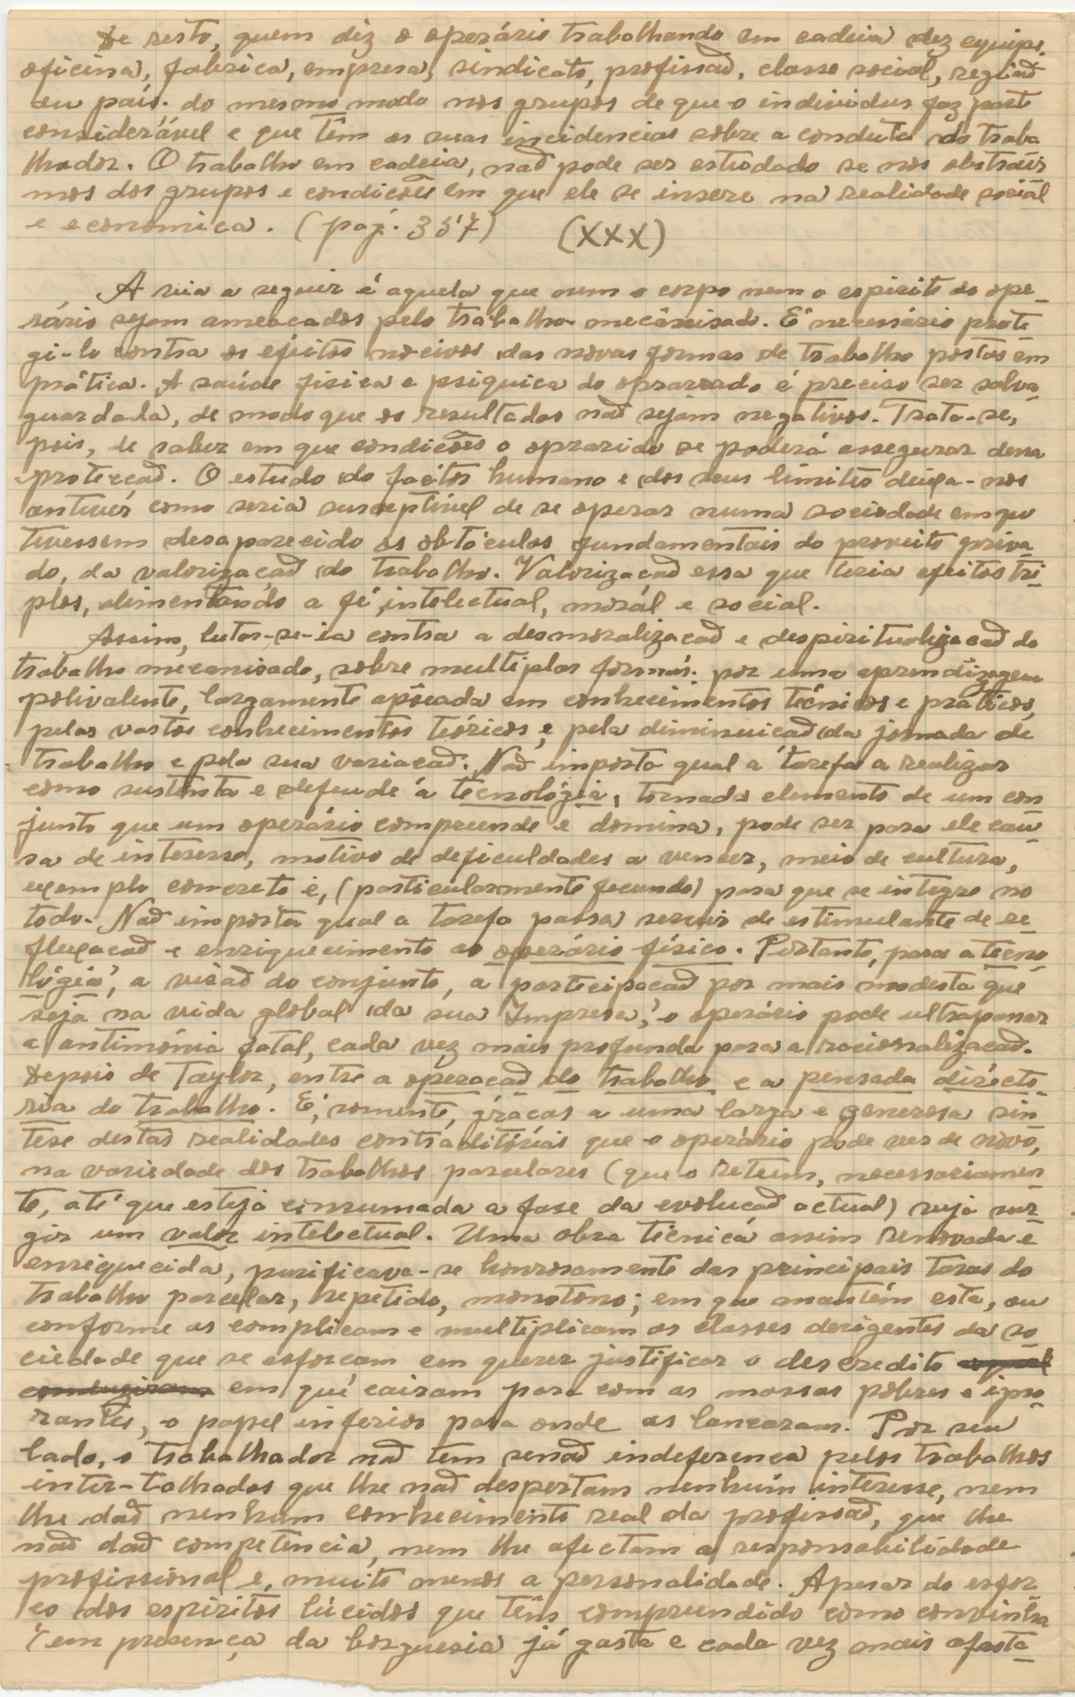 De resto, quem diz o operário trabalhando em cadeia diz equipe,
oficina, fábrica, empresa, sindicato, profissaõ, classe social, regiaõ
ou país. do mesmo modo nos grupos de que o individuo faz parte
considerável e que têm as suas incidencias sobre a conduta do traba
lhador. O trabalho em cadeia, naõ pode ser estudado se nos abstrair
mos dos grupos e condicoẽs em que ele se insere na realidade social
e economica. (pag. 357) (XXX)
A via a seguir é aquela que num o corpo nem o espirito do ope-
rário sejam ameacados pelo trabalho mecânisado. E' necessário prote
gi-lo contra os efeitos nocivos das novas formas de trabalho postas em
prática. A saúde fisica e psiquica do operariado é preciso ser salva-
guardada, de modo que os resultados naõ sejam negativos. Trata-se,
pois, de saber em que condicoẽs o oprariado se poderá assegurar dessa
proteccaõ. O estudo do factor humano e dos seus limites deixa-nos
antiver como seria susceptivel de se operar numa sociedade em que
tivessem desaparecido os obstáculos fundamentais do proveito priva-
do, da valorizacaõ do trabalho. Valorizacaõ essa que teria efeitos tri-
plos, alimentando a fé intelectual, morál e social.
Assim, lutar-se-ia contra a desmoralizacaõ e despiritualizacaõ do
trabalho mecanisado, sobre multiplas formas: por uma aprendizagem
polivalente, largamente apoiada em conhecimentos técnicos e práticos,
pelos vastos conhecimentos teóricos, e pela diminuicaõ da jornada de
trabalho e pela sua variacaõ. Naõ importa qual a tarefa a realizar
como sustenta e defende a tecnológia, tornada elemento de um con
junto que um operário compreende e domina, pode ser para ele cau-
sa de interesse, motivo de deficuldades a vencer, meio de cultura,
exemplo concreto e, (particularmente fecundo) para que se integre no
todo. Naõ importa qual a tarefa possa servir de estimulante de re-
flexacaõ e enriquecimento ao operário físico. Portanto, para a tecno-
lógia, a visaõ do conjunto, a participacaõ por mais modesta que
seja na vida global da sua Impresa, o operário pode ultrapassar
a antimónia fatal, cada vez mais profunda para a racionalizacaõ.
Depois de Taylor, entre a operacaõ do trabalho e a pensada directo-
ria do trabalho. E', somente, gracas a uma larga e generosa sin-
tese destas realidades contraditórias que o operário pode ver de novo,
na variedade dos trabalhos parcelares (que o retem, necessariamen-
te, até que esteja consumada a fase da evolucaõ actual) seja sur-
gir um valor intelectual. Uma obra técnica assim renovada e
enriquecida, purificava-se honrosamente das principais taras do
trabalho parcelar, repetido, monotono; em que mantém esta, ou
conforme as complicam e multiplicam as classes derigentes da so-
ciedade que se esforcam em querer justificar o descredito
em que cairam para com as massas pobres e igno-
rantes, o papel inferior para onde as lancaram. Por seu
lado, o trabalhador naõ tem senaõ indeferença pelos trabalhos
inter-talhados que lhe naõ despertam nenhum interesse, nem
lhe daõ nenhum conhecimento real da profissaõ, que lhe
naõ daõ competencia, nem lhe afectam a responsabilidade
profissional e, muito menos a personalidade. Apesar do esfor-
co dos espiritos lúcidos que têm compreendido como convinha
(em presença da borguesia já gasta e cada vez mais afasta-